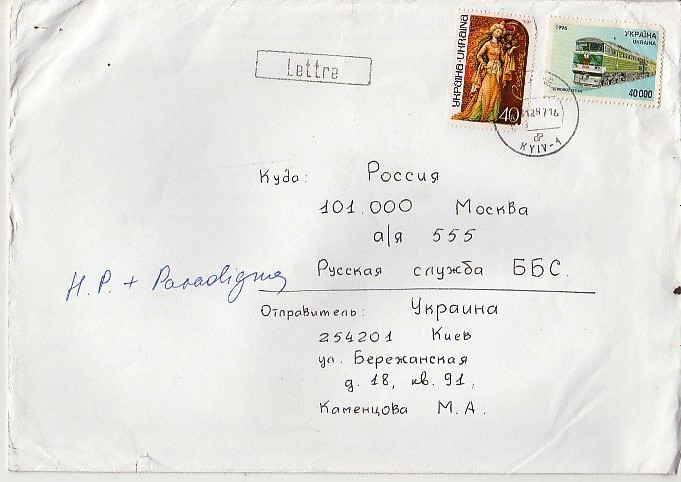 Lettre
УКРАЇНА·UKRAINA
40
1996
УКРАЇНА
UKRAINA
40 000
KYIV-1
Куда: Россия
101.000 Москва
а/я 555
Русская служба ББС.
H.P. + Paradigma
Отправитель: Украина
254201 Киев
ул. Бережанская
д. 18, кв. 91.
Каменцова М.А.